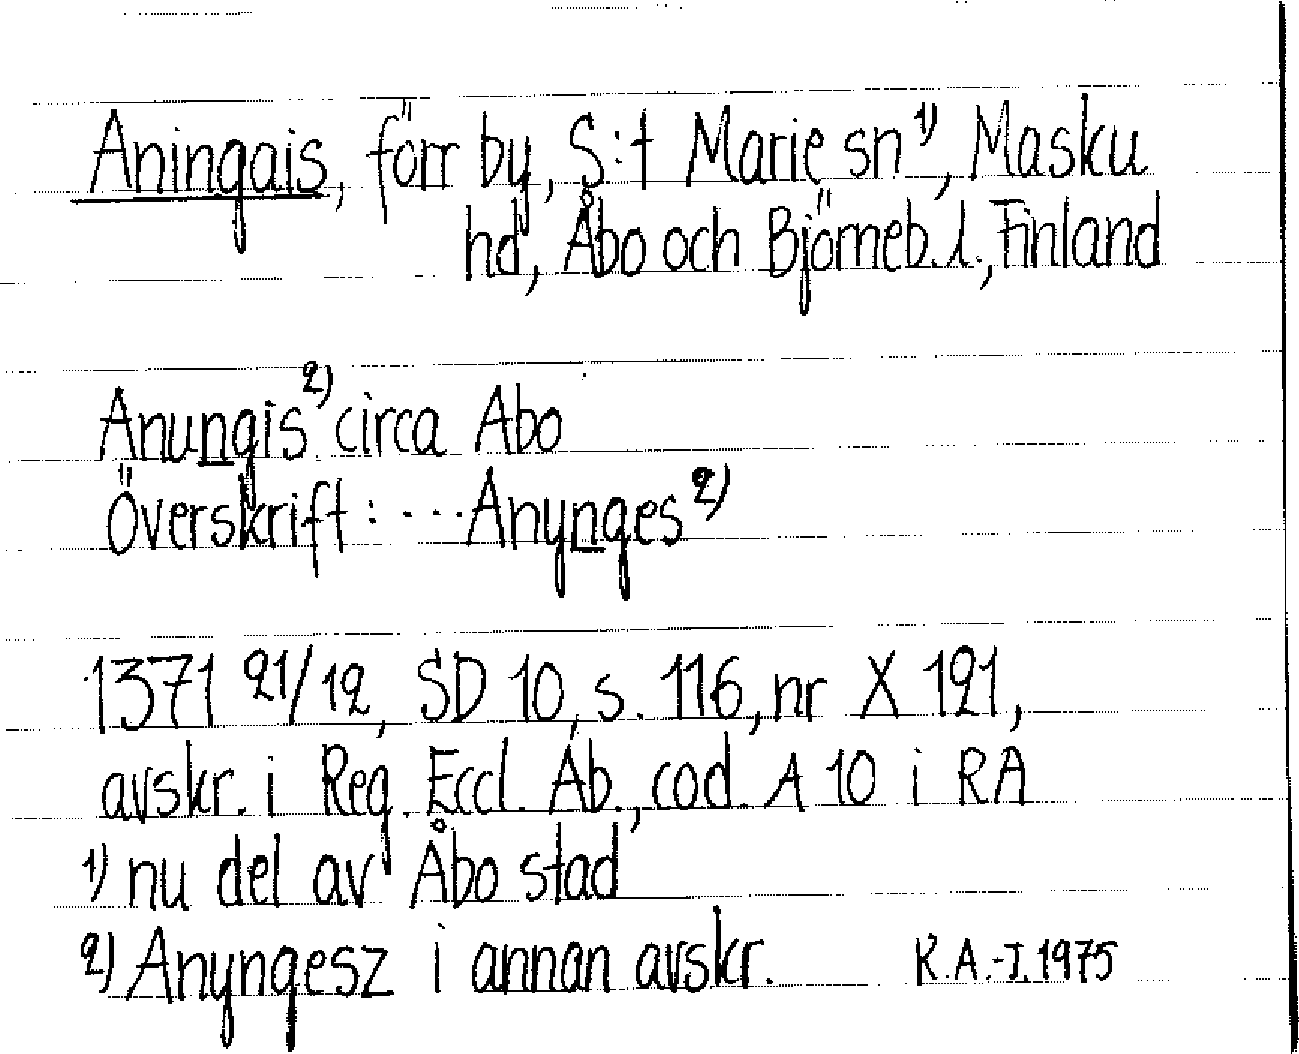 Aningais, förr by, S:t Marie sn 1), Masku
hd, Åbo och Björneb. l., Finland
Anungis 2) circa Abo
Överskrift: ....Anynges 2)
1371 21/12, SD 10, s. 116, nr X 121,
avskr. i Reg. Eccl. Ab., cod. A 10 i RA
1) nu del av Åbo stad
2) Anyngesz i annan avskr. R.A.-I. 1975